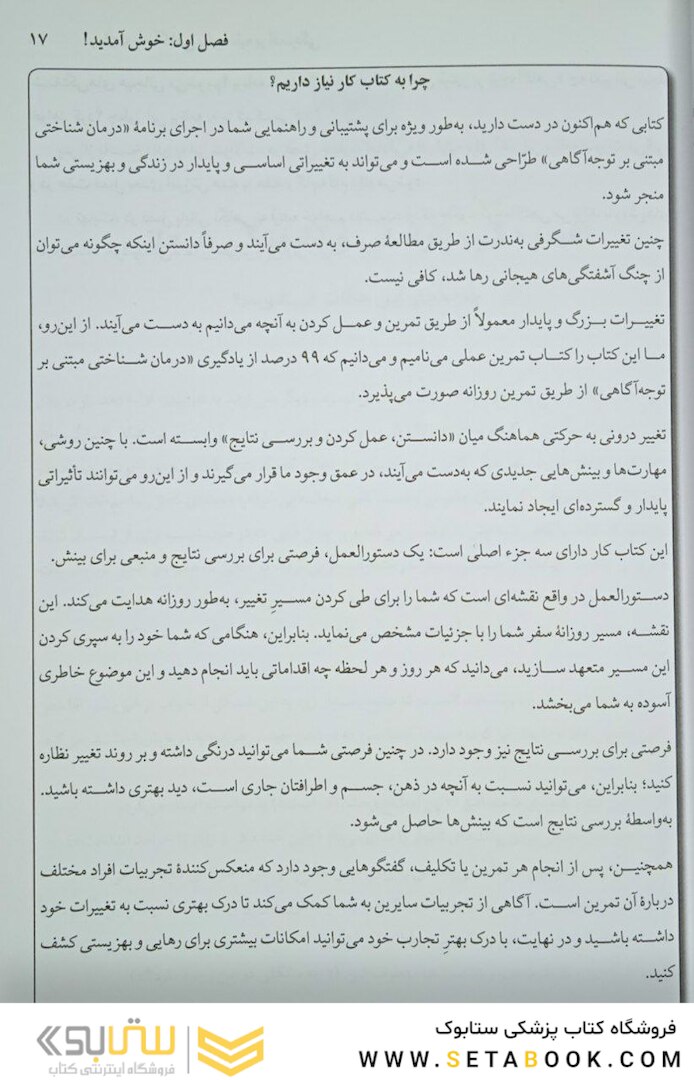 فصل اول: خوش آمدید! ۱۷
چرا به کتاب کار نیاز داریم؟
کتابی که هم‌اکنون در دست دارید، به‌طور ویژه برای پشتیبانی و راهنمایی شما در اجرای برنامهٔ «درمان شناختی
مبتنی بر توجه‌آگاهی» طرّاحی شده است و می‌تواند به تغییراتی اساسی و پایدار در زندگی و بهزیستی شما
منجر شود.
چنین تغییرات شگرفی به‌ندرت از طریق مطالعهٔ صرف، به دست می‌آیند و صرفاً دانستن اینکه چگونه می‌توان
از چنگ آشفتگی‌های هیجانی رها شد، کافی نیست.
تغییرات بزرگ و پایدار معمولاً از طریق تمرین و عمل کردن به آنچه می‌دانیم به دست می‌آیند. از این‌رو،
ما این کتاب را کتاب تمرین عملی می‌نامیم و می‌دانیم که ۹۹ درصد از یادگیری «درمان شناختی مبتنی بر
توجه‌آگاهی» از طریق تمرین روزانه صورت می‌پذیرد.
تغییر درونی به حرکتی هماهنگ میان «دانستن، عمل کردن و بررسی نتایج» وابسته است. با چنین روشی،
مهارت‌ها و بینش‌هایی جدیدی که به‌دست می‌آیند، در عمق وجود ما قرار می‌گیرند و از این‌رو می‌توانند تأثیراتی
پایدار و گسترده‌ای ایجاد نمایند.
این کتاب کار دارای سه جزء اصلی است: یک دستورالعمل، فرصتی برای بررسی نتایج و منبعی برای بینش.
دستورالعمل در واقع نقشه‌ای است که شما را برای طی کردن مسیرِ تغییر، به‌طور روزانه هدایت می‌کند. این
نقشه، مسیر روزانهٔ سفر شما را با جزئیات مشخص می‌نماید. بنابراین، هنگامی که شما خود را به سپری کردن
این مسیر متعهد سازید، می‌دانید که هر روز و هر لحظه چه اقداماتی باید انجام دهید و این موضوع خاطری
آسوده به شما می‌بخشد.
فرصتی برای بررسی نتایج نیز وجود دارد. در چنین فرصتی شما می‌توانید درنگی داشته و بر روند تغییر نظاره
کنید؛ بنابراین، می‌توانید نسبت به آنچه در ذهن، جسم و اطرافتان جاری است، دید بهتری داشته باشید.
به‌واسطهٔ بررسی نتایج است که بینش‌ها حاصل می‌شود.
همچنین، پس از انجام هر تمرین یا تکلیف، گفتگوهایی وجود دارد که منعکس‌کنندهٔ تجربیات افراد مختلف
دربارهٔ آن تمرین است. آگاهی از تجربیات سایرین به شما کمک می‌کند تا درک بهتری نسبت به تغییرات خود
داشته باشید و در نهایت، با درک بهترِ تجارب خود می‌توانید امکانات بیشتری برای رهایی و بهزیستی کشف
کنید.
فروشگاه کتاب پزشکی ستابوک
WWW.SETABOOK.COM
ستابوک
فروشگاه اینترنتی کتاب